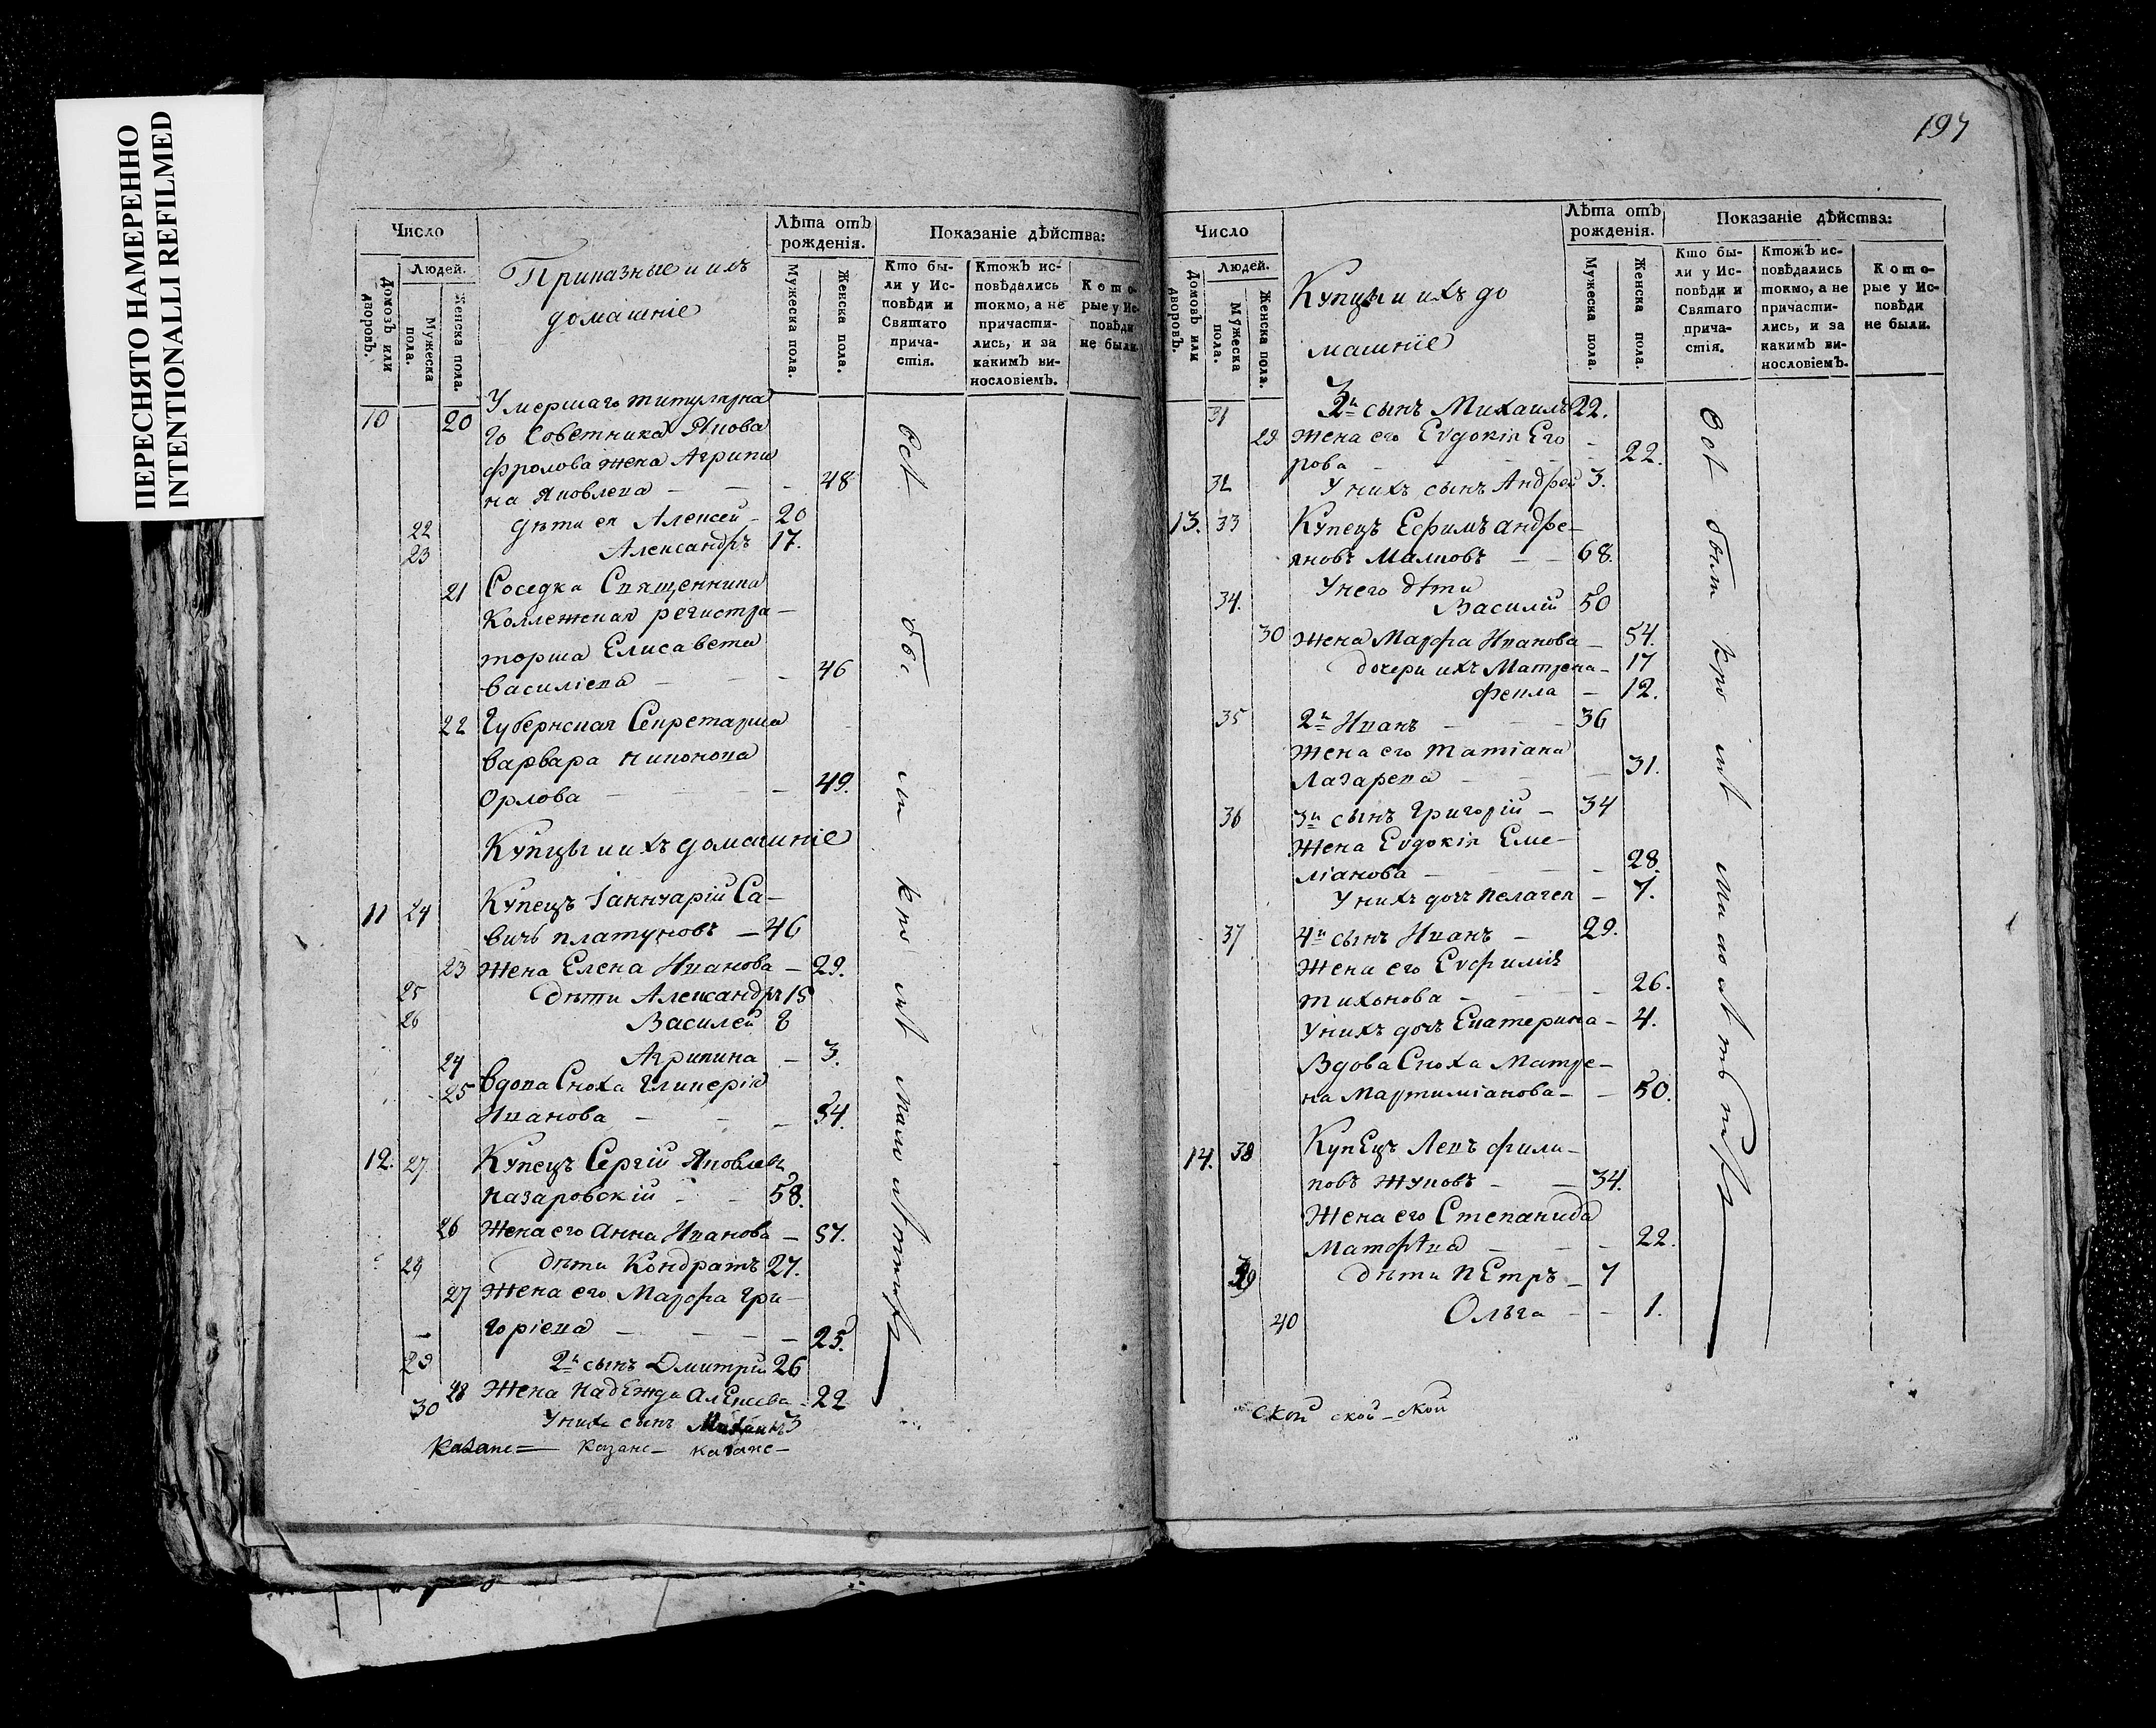 ПЕРЕСНЯТО НАМЕРЕННО
INTENTIONALLI REFILMED
Число
Людей.
Домовъ или дворовъ.
Мужеска пола.
Женска пола.
Приказные и ихъ
домашніе
Лѣта отъ рожденія.
Мужеска пола.
Женска пола.
Показаніе дѣйства:
Кто были у Исповѣди и Святаго причастія.
Ктожъ исповѣдались токмо, а не причастились, и за какимъ винословіемъ.
Которые у Исповѣди не были.
10 20 Умершаго титулярна
го Советника Якова
фролова жена Агрипи
на Яковлева — — — 48
22 дѣти ея Алексей — 20
23 Александръ 17.
21 Соседка Священника
Коллежская регистра—
торша Елисавета
Василіева — — 46
22 Губернская Секретарша
Варвара Никонова
Орлова — — 49.
Купцы и ихъ домашніе
11 24 Купецъ Іаннуарій Са—
вичь платуновъ — 46
23 Жена Елена Иванова — 29.
25 дѣти Александръ 15
26 Василей 8
24 Агрипина — 3.
25 вдова Сноха Гликерія
Иванова — — 54.
12. 27. Купецъ Сергій Яковлевъ
назаровскій — — 58.
26 Жена его Анна Иванова — 57.
28 дѣти Кондратъ 27.
27 Жена его Марфа Гри—
горіева — — — — 25.
29 2й сынъ Дмитрій 26
28 Жена надежда алЕксева — 22
30 Унихъ сынъ Михаилъ 3
Казанс— Казанс— казанс—
197
Число
Людей.
Домовъ или дворовъ.
Мужеска пола.
Женска пола.
Купцы и ихъ до
машніе
Лѣта отъ рожденія.
Мужеска пола.
Женска пола.
Показаніе дѣйства:
Кто были у Исповѣди и Святаго причастія.
Ктожъ исповѣдались токмо, а не причастились, и за какимъ винословіемъ.
Которые у Исповѣди не были.
31 3й сынъ Михаилъ 22.
29 жена его Евдокія Его
рова — — — 22.
32 Унихъ сынъ Андрей 3.
13. 33 Купецъ Ефимъ андре—
яновъ Малковъ — — 68.
Унего дѣти
34. Василій 50
30 жена Марфа Иванова — 54.
дочери ихъ Матрена — 17
фекла — 12.
35 2й Иванъ — — 36
Жена его татіана
Лазарева — — 31.
36 3й сынъ Григорій — 34
Жена Евдокія Еме—
ліанова — — — 28.
Унихъ дочь пелагея — 7.
37 4й сынъ Иванъ — 29.
Жена его Евфимія
тихонова — — 26.
Унихъ дочь Екатерина — 4.
Вдова Сноха Матре—
на Мартиміанова — — 50.
14. 38 КупЕцъ Левъ фили—
повъ жуковъ — — 34.
Жена его Степанида
Матфѣва — — 22.
39 дѣти пЕтръ — 7
40 Ольга — — 1.
ской ской — ской